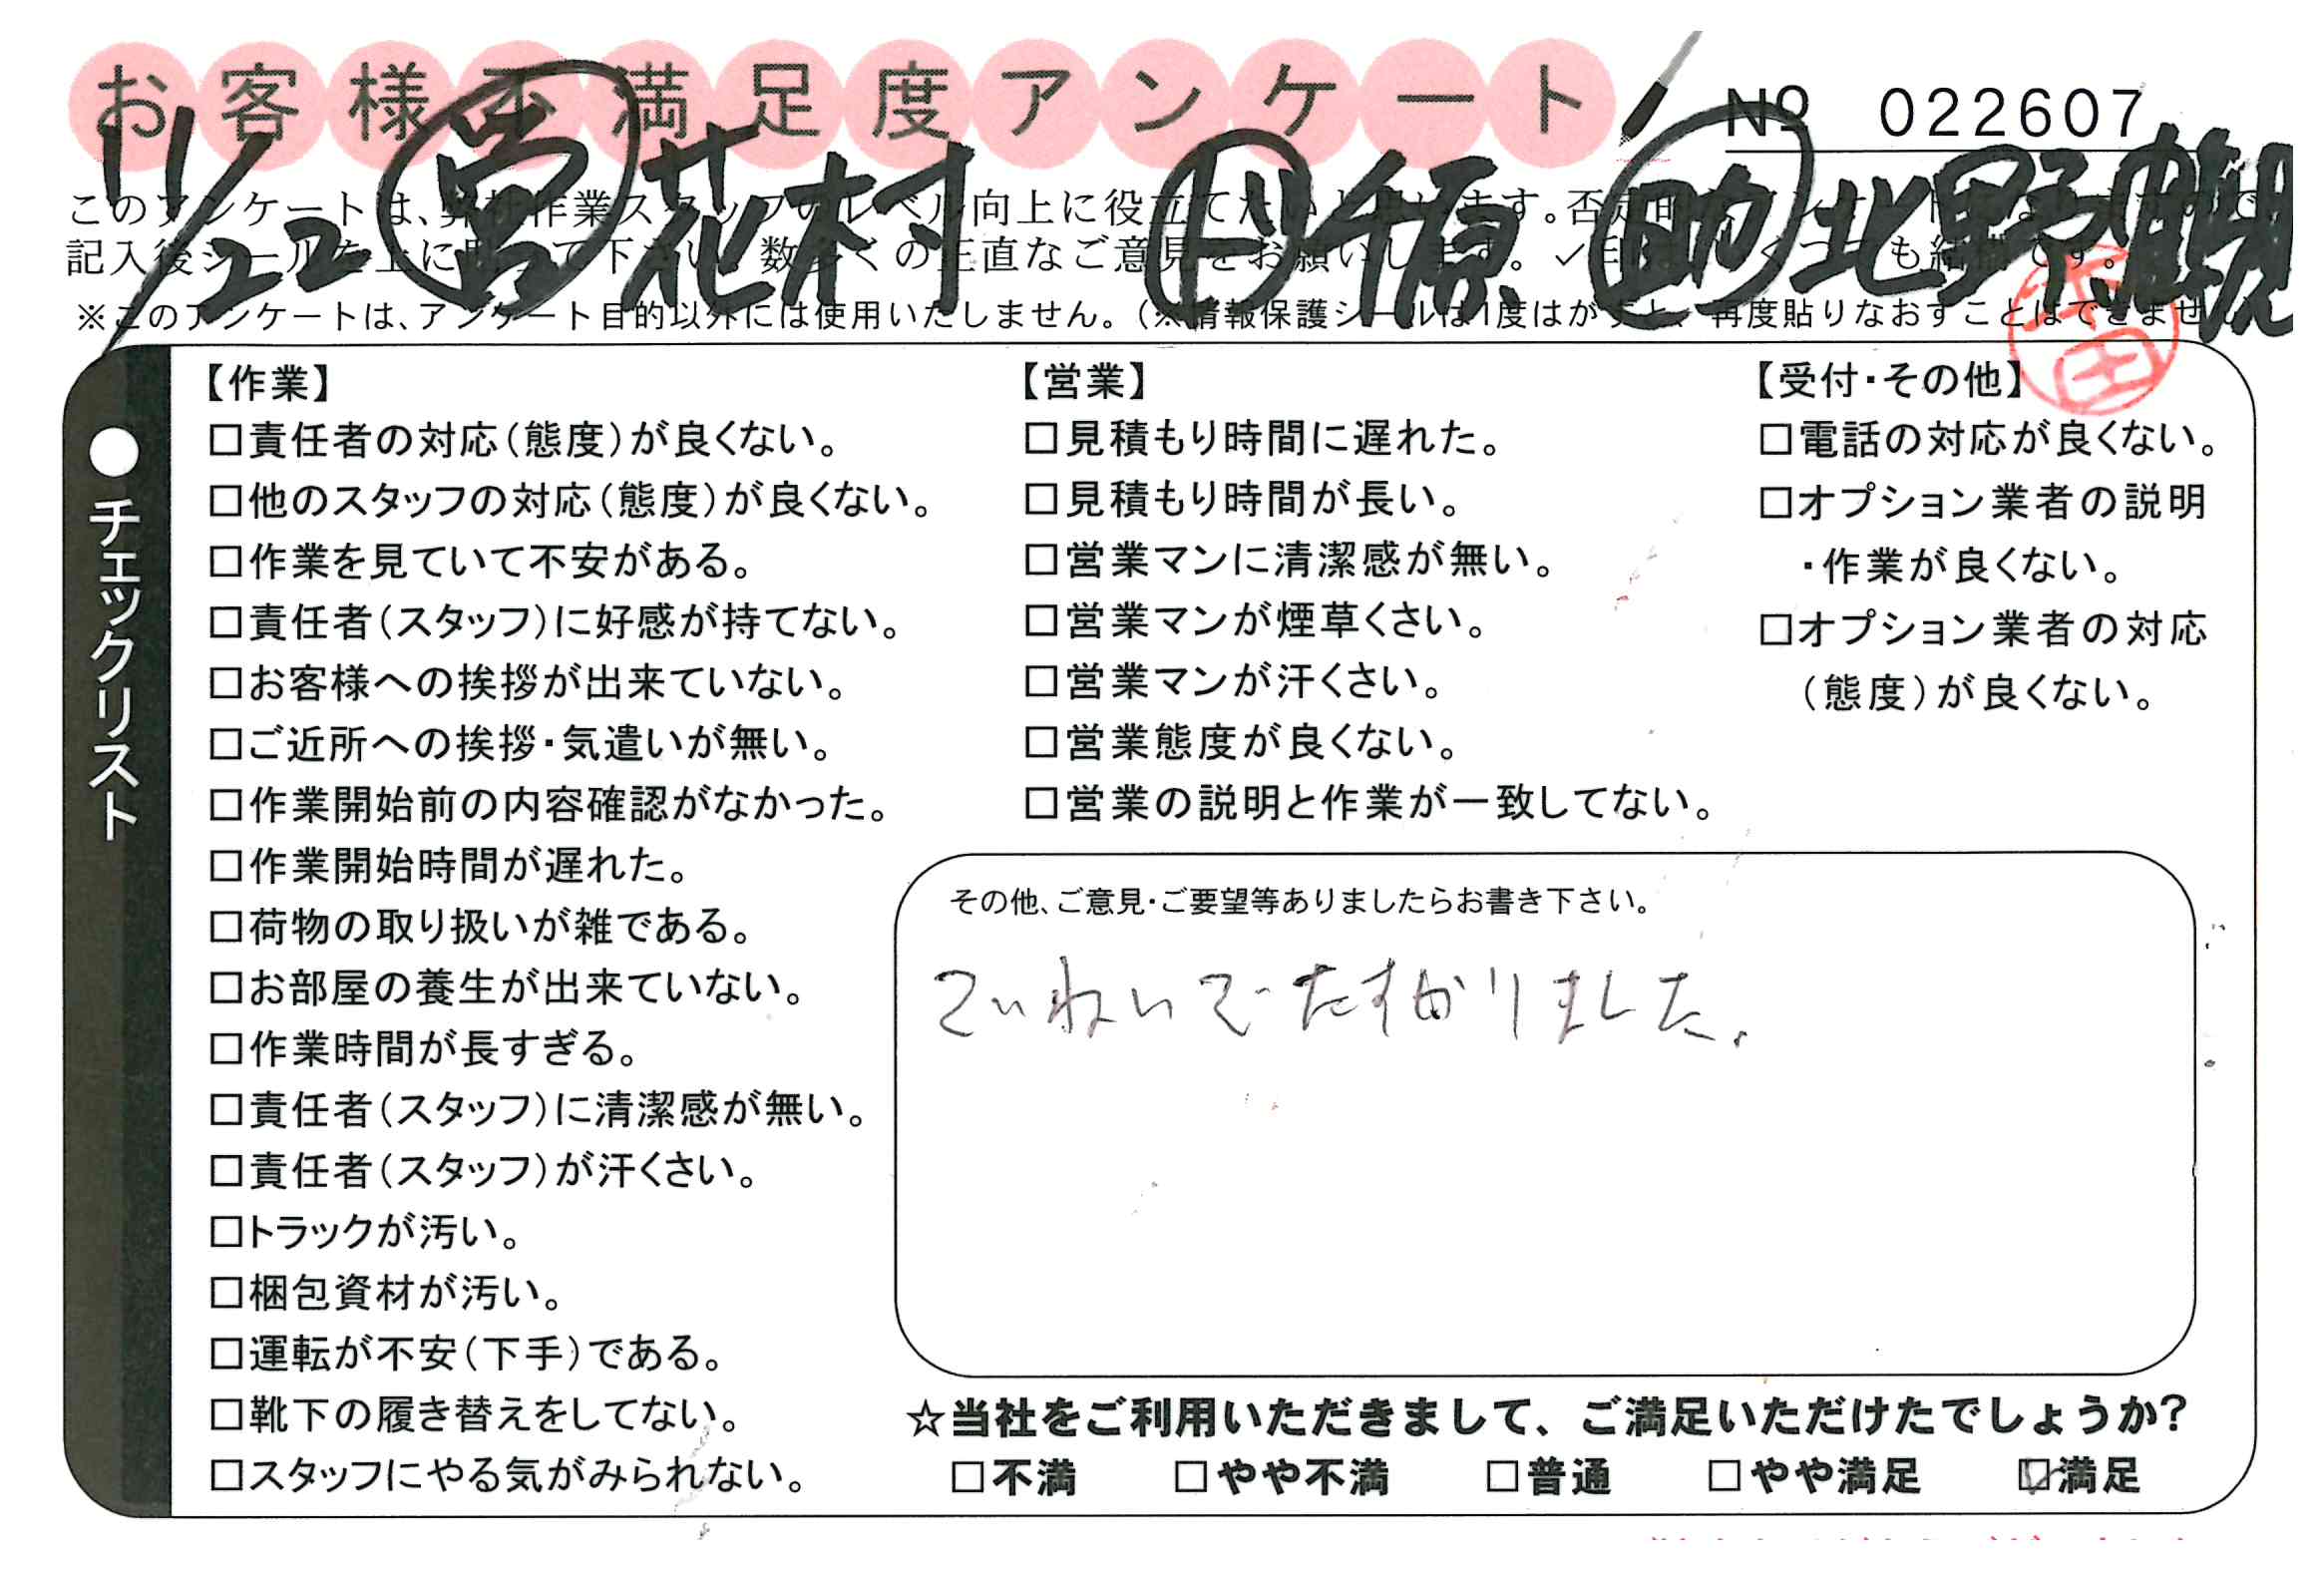 お客様不満足度アンケート
№ 022607
11/22 営 花村 ド 千原 助 北野 鶴見
このアンケートは、弊社作業スタッフのレベル向上に役立てたいと
記入後シールを上に貼って下さい。数多くの正直なご意見をお願いします。
※このアンケートは、アンケート目的以外には使用いたしません。(※情報保護シールは1度はがすと、再度貼りなおすことはできません)
●チェックリスト
【作業】
□責任者の対応(態度)が良くない。
□他のスタッフの対応(態度)が良くない。
□作業を見ていて不安がある。
□責任者(スタッフ)に好感が持てない。
□お客様への挨拶が出来ていない。
□ご近所への挨拶・気遣いが無い。
□作業開始前の内容確認がなかった。
□作業開始時間が遅れた。
□荷物の取り扱いが雑である。
□お部屋の養生が出来ていない。
□作業時間が長すぎる。
□責任者(スタッフ)に清潔感が無い。
□責任者(スタッフ)が汗くさい。
□トラックが汚い。
□梱包資材が汚い。
□運転が不安(下手)である。
□靴下の履き替えをしてない。
□スタッフにやる気がみられない。
【営業】
□見積もり時間に遅れた。
□見積もり時間が長い。
□営業マンに清潔感が無い。
□営業マンが煙草くさい。
□営業マンが汗くさい。
□営業態度が良くない。
□営業の説明と作業が一致してない。
【受付・その他】
□電話の対応が良くない。
□オプション業者の説明
・作業が良くない。
□オプション業者の対応
(態度)が良くない。
その他、ご意見・ご要望等ありましたらお書き下さい。
ていねいでたすかりました。
☆当社をご利用いただきまして、ご満足いただけたでしょうか?
□不満 □やや不満 □普通 □やや満足 ☑満足